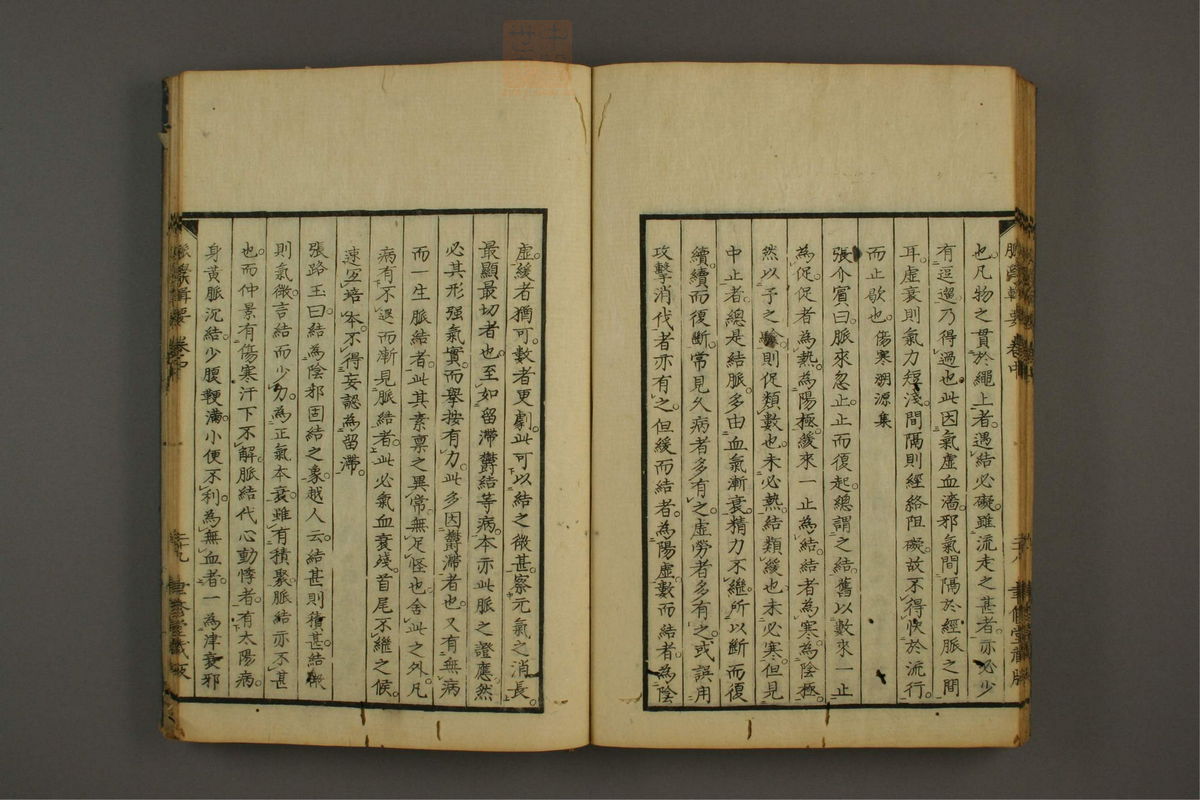 也凡物之貫於繩上者遇結必礙雖流走之甚者亦必少
有逗遛乃得過也此因氣虛血濇邪氣間隔於經脈之間
耳虛衰則氣力短淺間隔則經絡阻礙故不得快於流行
而止歇也傷寒溯源集
張介賓曰脈來忽止止而復起總謂之結舊以數來一止
為促促者為熱為陽極緩來一止為結結者為寒為陰極
然以予之驗則促類數也未必熱結類緩也未必寒但見
中止者總是結脈多由血氣漸衰精力不繼所以斷而復
續續而復斷常見久病者多有之虛勞者多有之或誤用
攻擊消伐者亦有之但緩而結者為陽虛數而結者為陰
虛緩者猶可數者更劇此可以結之微甚察元氣之消長
最顯最切者也至如留滯鬱結等病本亦此脈之證應然
必其形强氣實而舉按有力此多因鬱滯者也又有無病
而一生脈結者此其素禀之異常無足怪也舍此之外凡
病有不退而漸見脈結者此必氣血衰殘首尾不繼之候
速宜培本不得妄認為留滯
張路玉曰結為陰邪固結之象越人云結甚則積甚結微
則氣微言結而少力為正氣本衰雖有積聚脈結亦不甚
也而仲景有傷寒汗下不解脈結代心動悸者有太陽病
身黃脈沉結少腹鞕滿小便不利為無血者一為津衰邪
脈學輯要 卷中 二十九 聿修堂藏版